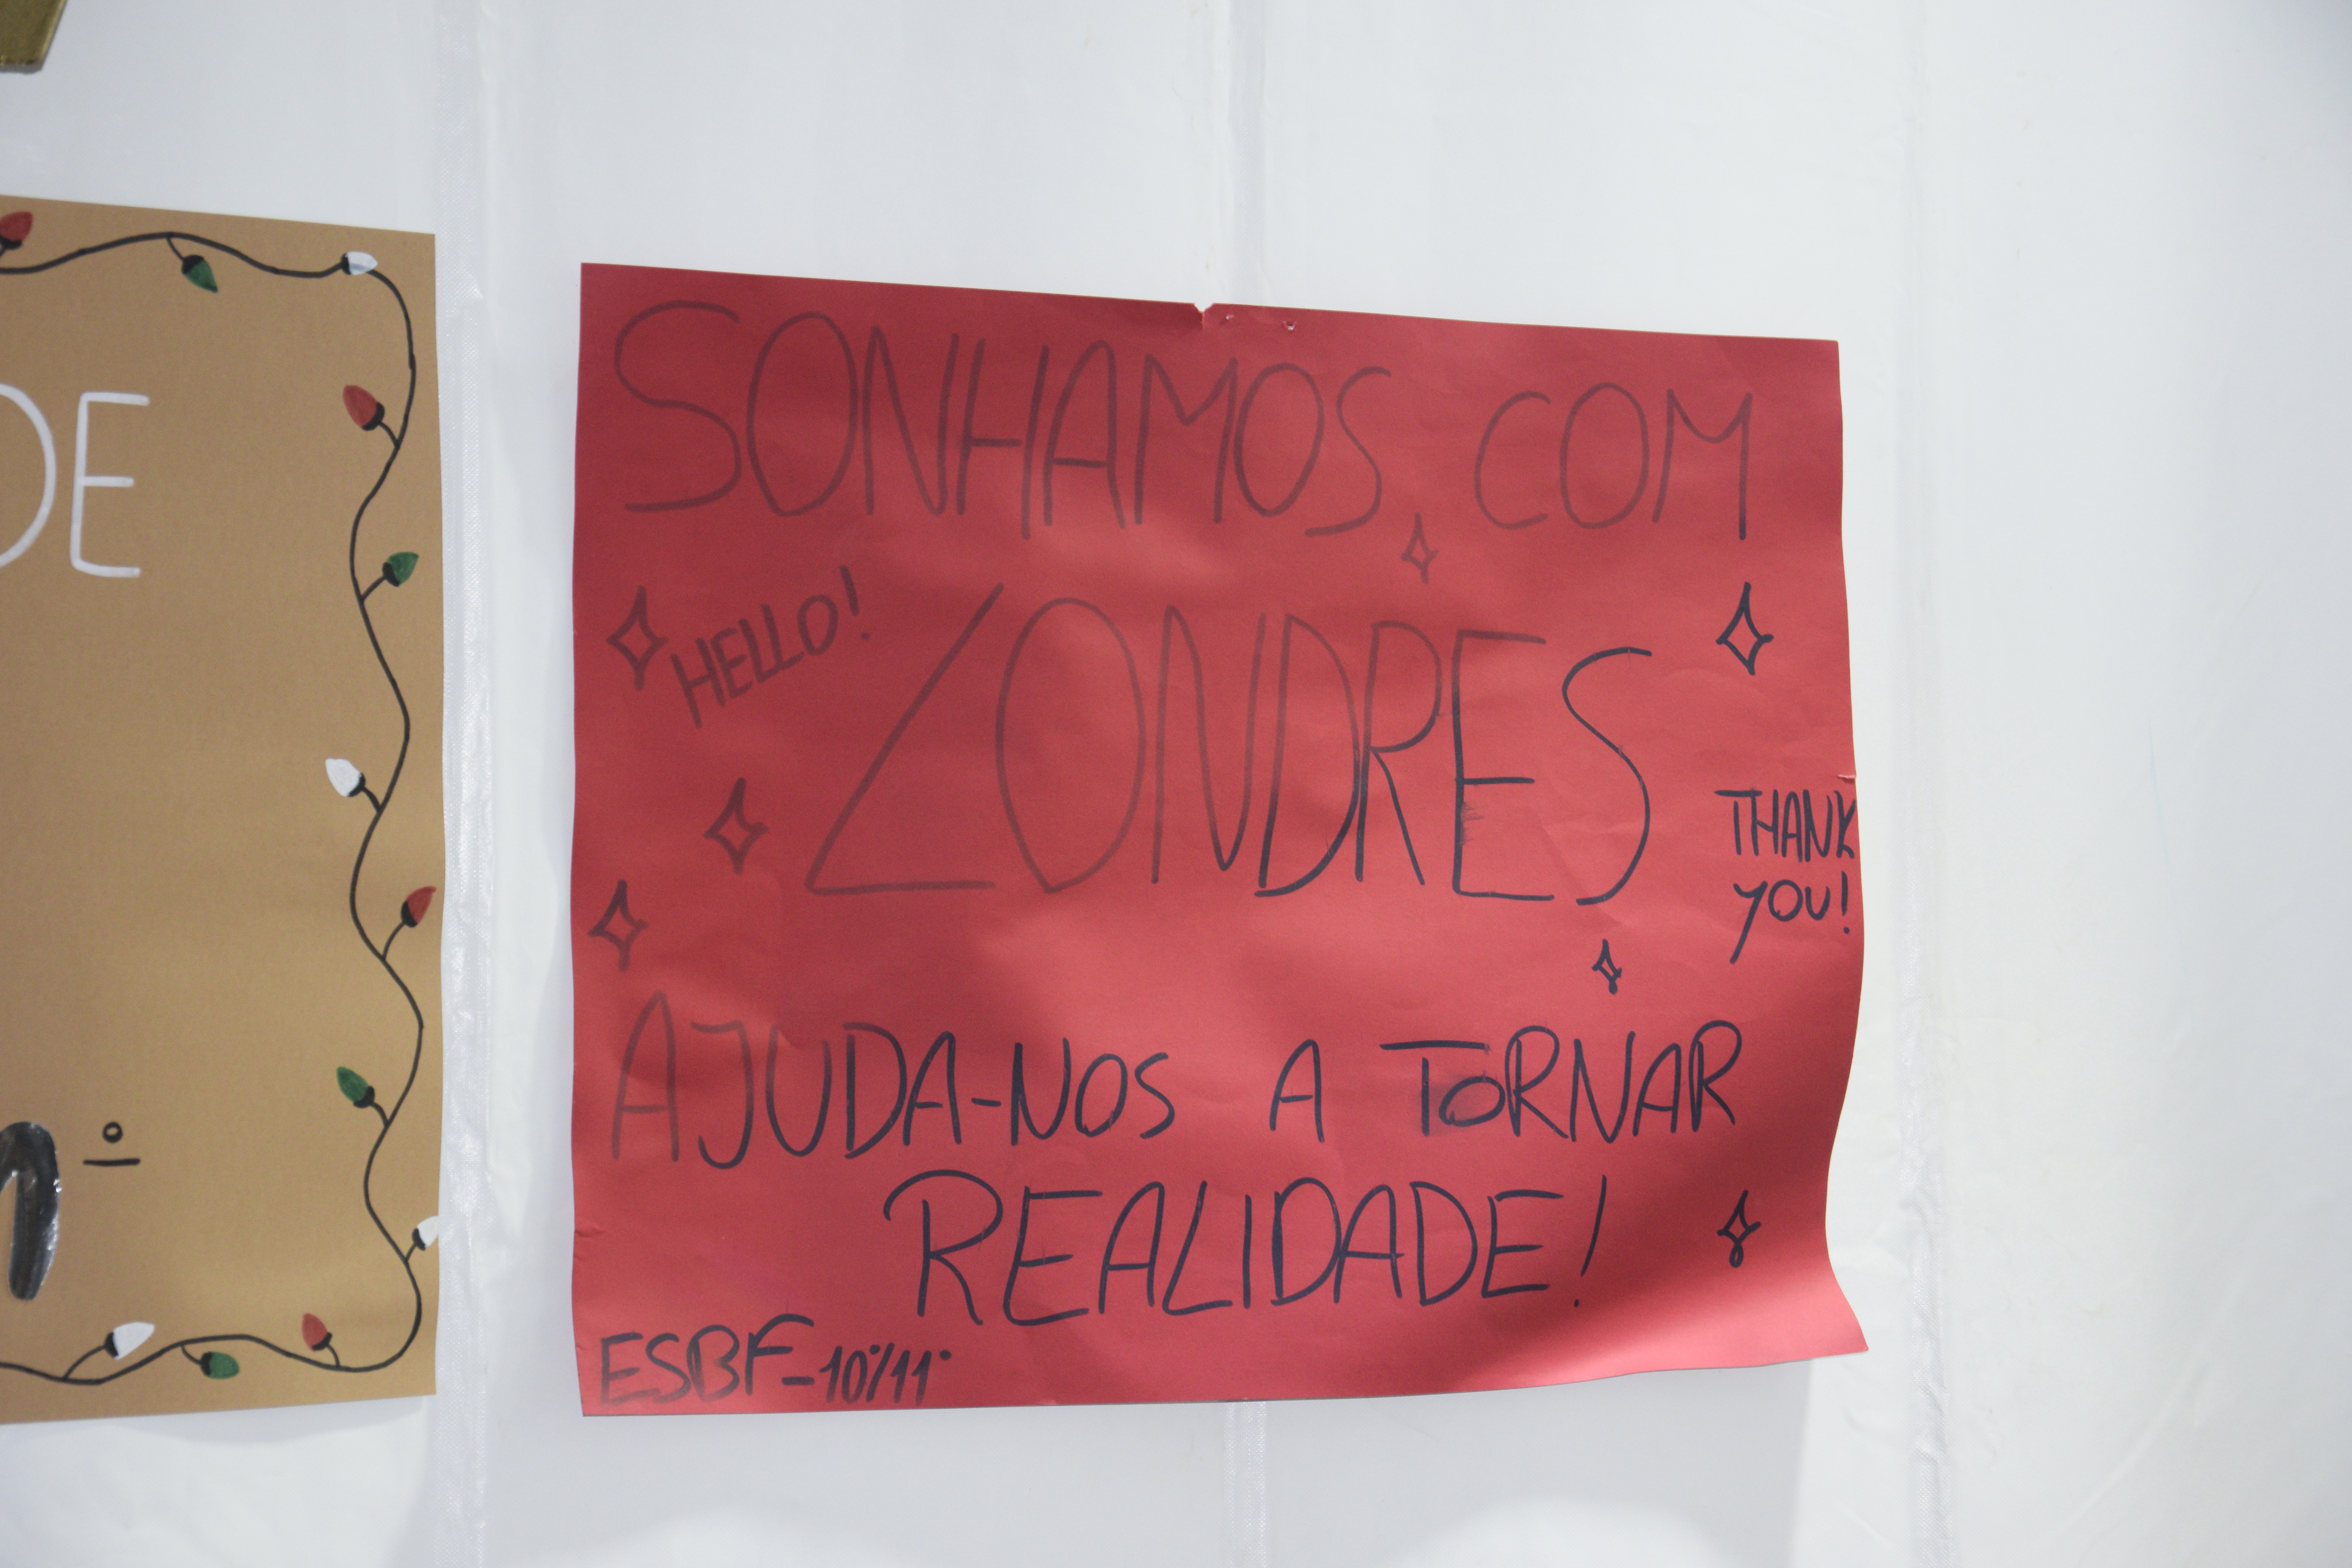 DE
º
SONHAMOS COM
HELLO!
LONDRES
THANK
YOU!
AJUDA-NOS A TORNAR
REALIDADE!
ESBF-10º/11º